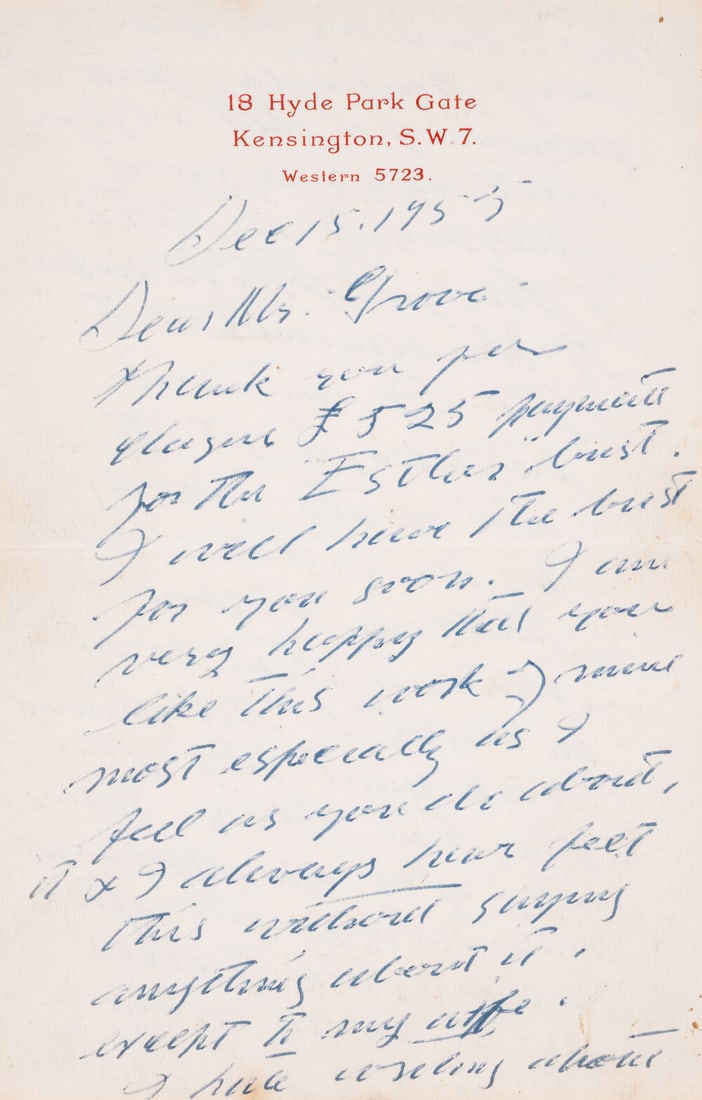 18 Hyde Park Gate
Kensington, S.W.7.
Western 5723.
Dec 15. 1955
Dear Mr. Grove
thank you for
£525 payment
for the "Esther" bust.
I will have the bust
for you soon. I am
very happy that you
like this work of mine
most especially as I
feel as you do about,
it & I always have felt
this without saying
anything about it.
except to my wife.
I hate about